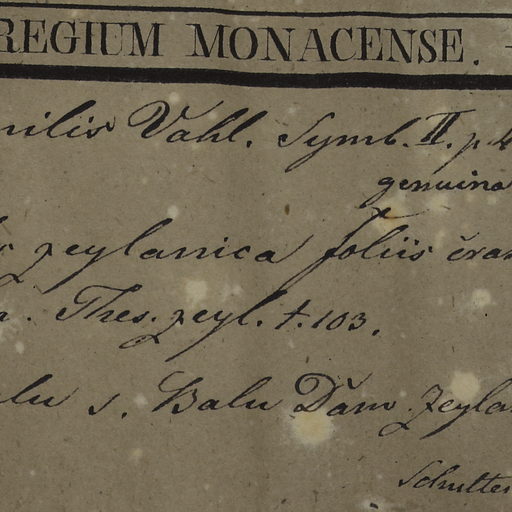 REGIUM MONACENSE.
Vahl. Symb. II. p.
genuina
zeylanica foliis
Thes. zeyl. t. 103.
s. Balu Dan Zeylan
Schultes